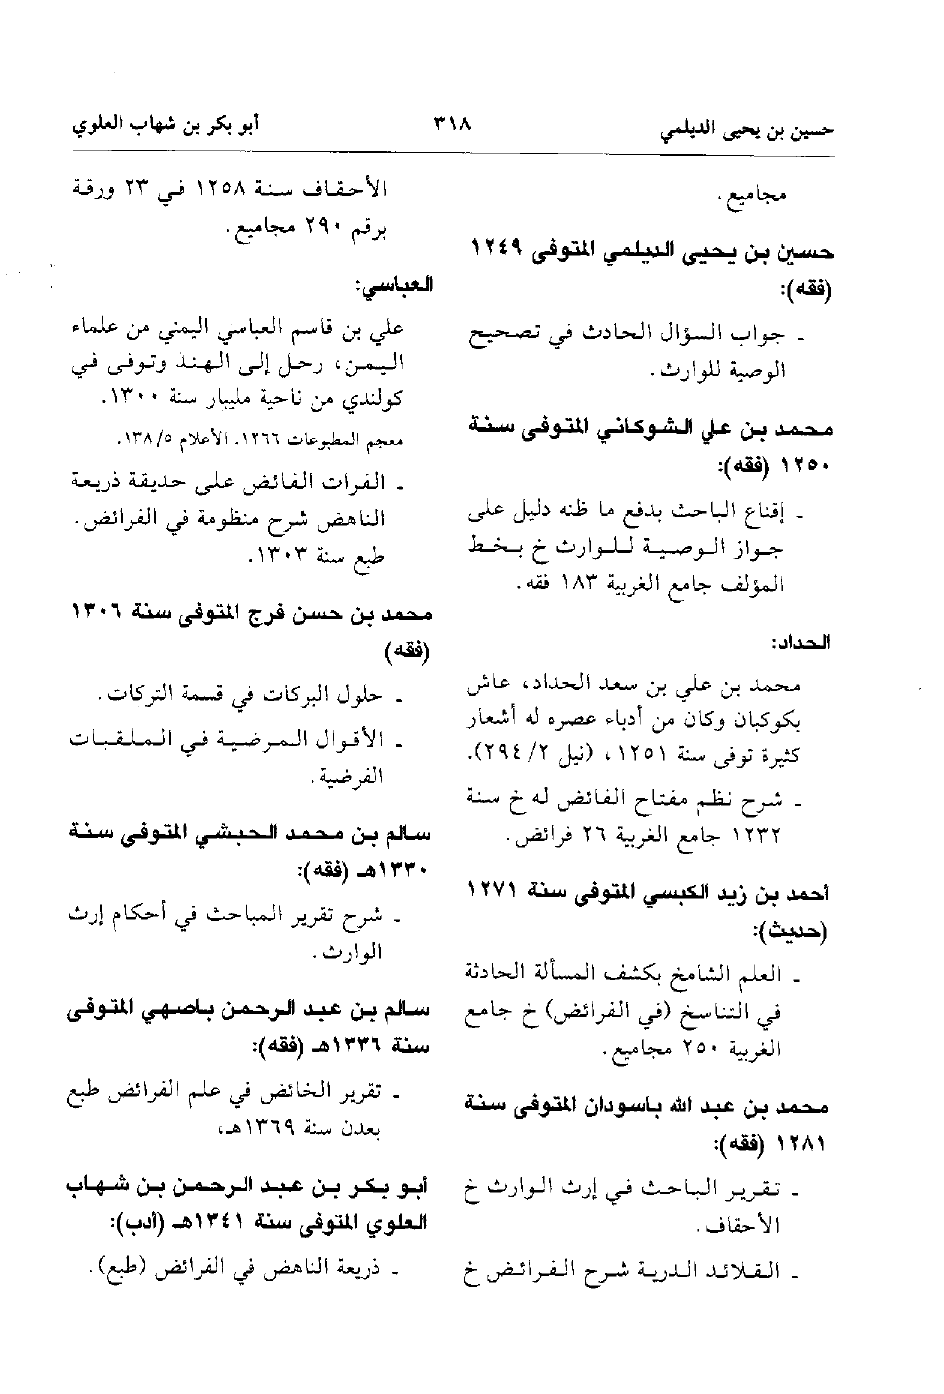 حسين بن يحيى الديلمي ٣١٨ أبو بكر بن شهاب العلوي
مجاميع.
حسين بن يحيى الديلمي المتوفى ١٢٤٩
(فقه):
ـ جواب السؤال الحادث في تصحيح
الوصية للوارث.
محمد بن علي الشوكاني المتوفى سنة
١٢٥٠ (فقه):
ـ إقناع الباحث بدفع ما ظنه دليل على
جواز الوصية للوارث خ بخط
المؤلف جامع الغربية ١٨٣ فقه.
الحداد:
محمد بن علي بن سعد الحداد، عاش
بكوكبان وكان من أدباء عصره له أشعار
كثيرة توفى سنة ١٢٥١، (نيل ٢/ ٢٩٤).
ـ شرح نظم مفتاح الفائض له خ سنة
١٢٣٢ جامع الغربية ٢٦ فرائض.
أحمد بن زيد الكبسي المتوفى سنة ١٢٧١
(حديث):
ـ العلم الشامخ بكشف المسألة الحادثة
في التناسخ (في الفرائض) خ جامع
الغربية ٢٥٠ مجاميع.
محمد بن عبد الله باسودان المتوفى سنة
١٢٨١ (فقه):
ـ تقرير الباحث في إرث الوارث خ
الأحقاف.
ـ القلائد الدرية شرح الفرائض خ
الأحقاف سنة ١٢٥٨ في ٢٣ ورقة
برقم ٢٩٠ مجاميع.
العباسي:
علي بن قاسم العباسي اليمني من علماء
اليمن، رحل إلى الهند وتوفى في
كولندي من ناحية مليبار سنة ١٣٠٠.
معجم المطبوعات ١٢٦٦. الأعلام ١٣٨/٥.
ـ الفرات الفائض على حديقة ذريعة
الناهض شرح منظومة في الفرائض.
طبع سنة ١٣٠٣.
محمد بن حسن فرج المتوفى سنة ١٣٠٦
(فقه)
ـ حلول البركات في قسمة التركات.
ـ الأقوال المرضية في الملقبات
الفرضية.
سالم بن محمد الحبشي المتوفى سنة
١٣٣٠هـ (فقه):
ـ شرح تقرير المباحث في أحكام إرث
الوارث.
سالم بن عبد الرحمن باصهي المتوفى
سنة ١٣٣٦هـ (فقه):
ـ تقرير الخائض في علم الفرائض طبع
بعدن سنة ١٣٦٩هـ،
أبو بكر بن عبد الرحمن بن شهاب
العلوي المتوفى سنة ١٣٤١هـ (أدب):
ـ ذريعة الناهض في الفرائض (طبع).